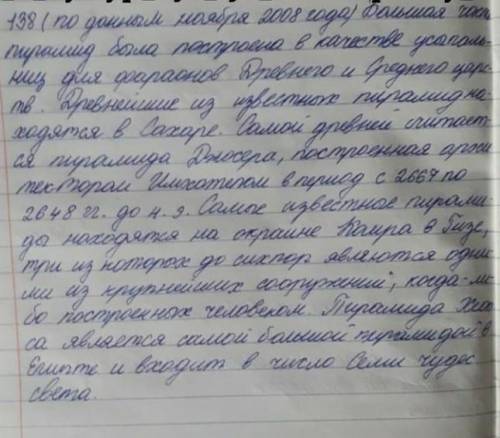 138 (по данным ноября 2008 года) Большая часть
пирамид была построена в качестве усыпаль-
ниц для фараонов Древнего и Среднего цар-
тв. Древнейшие из известных пирамид на-
ходятся в Сахаре. Самой древней считает-
ся пирамида Джосера, построенная архи
тектором Имхотепом в период с 2667 по
2648 гг. до н. э. Самые известные пирами-
ды находятся на окраине Каира в Гизе,
три из которох до сихпор являются одни-
ми из крупнейших сооружений, когда-ли-
бо построенных человеком. Пирамида Хеоп
са является самой большой пирамидой в
Египте и входит в число Семи чудес
света.